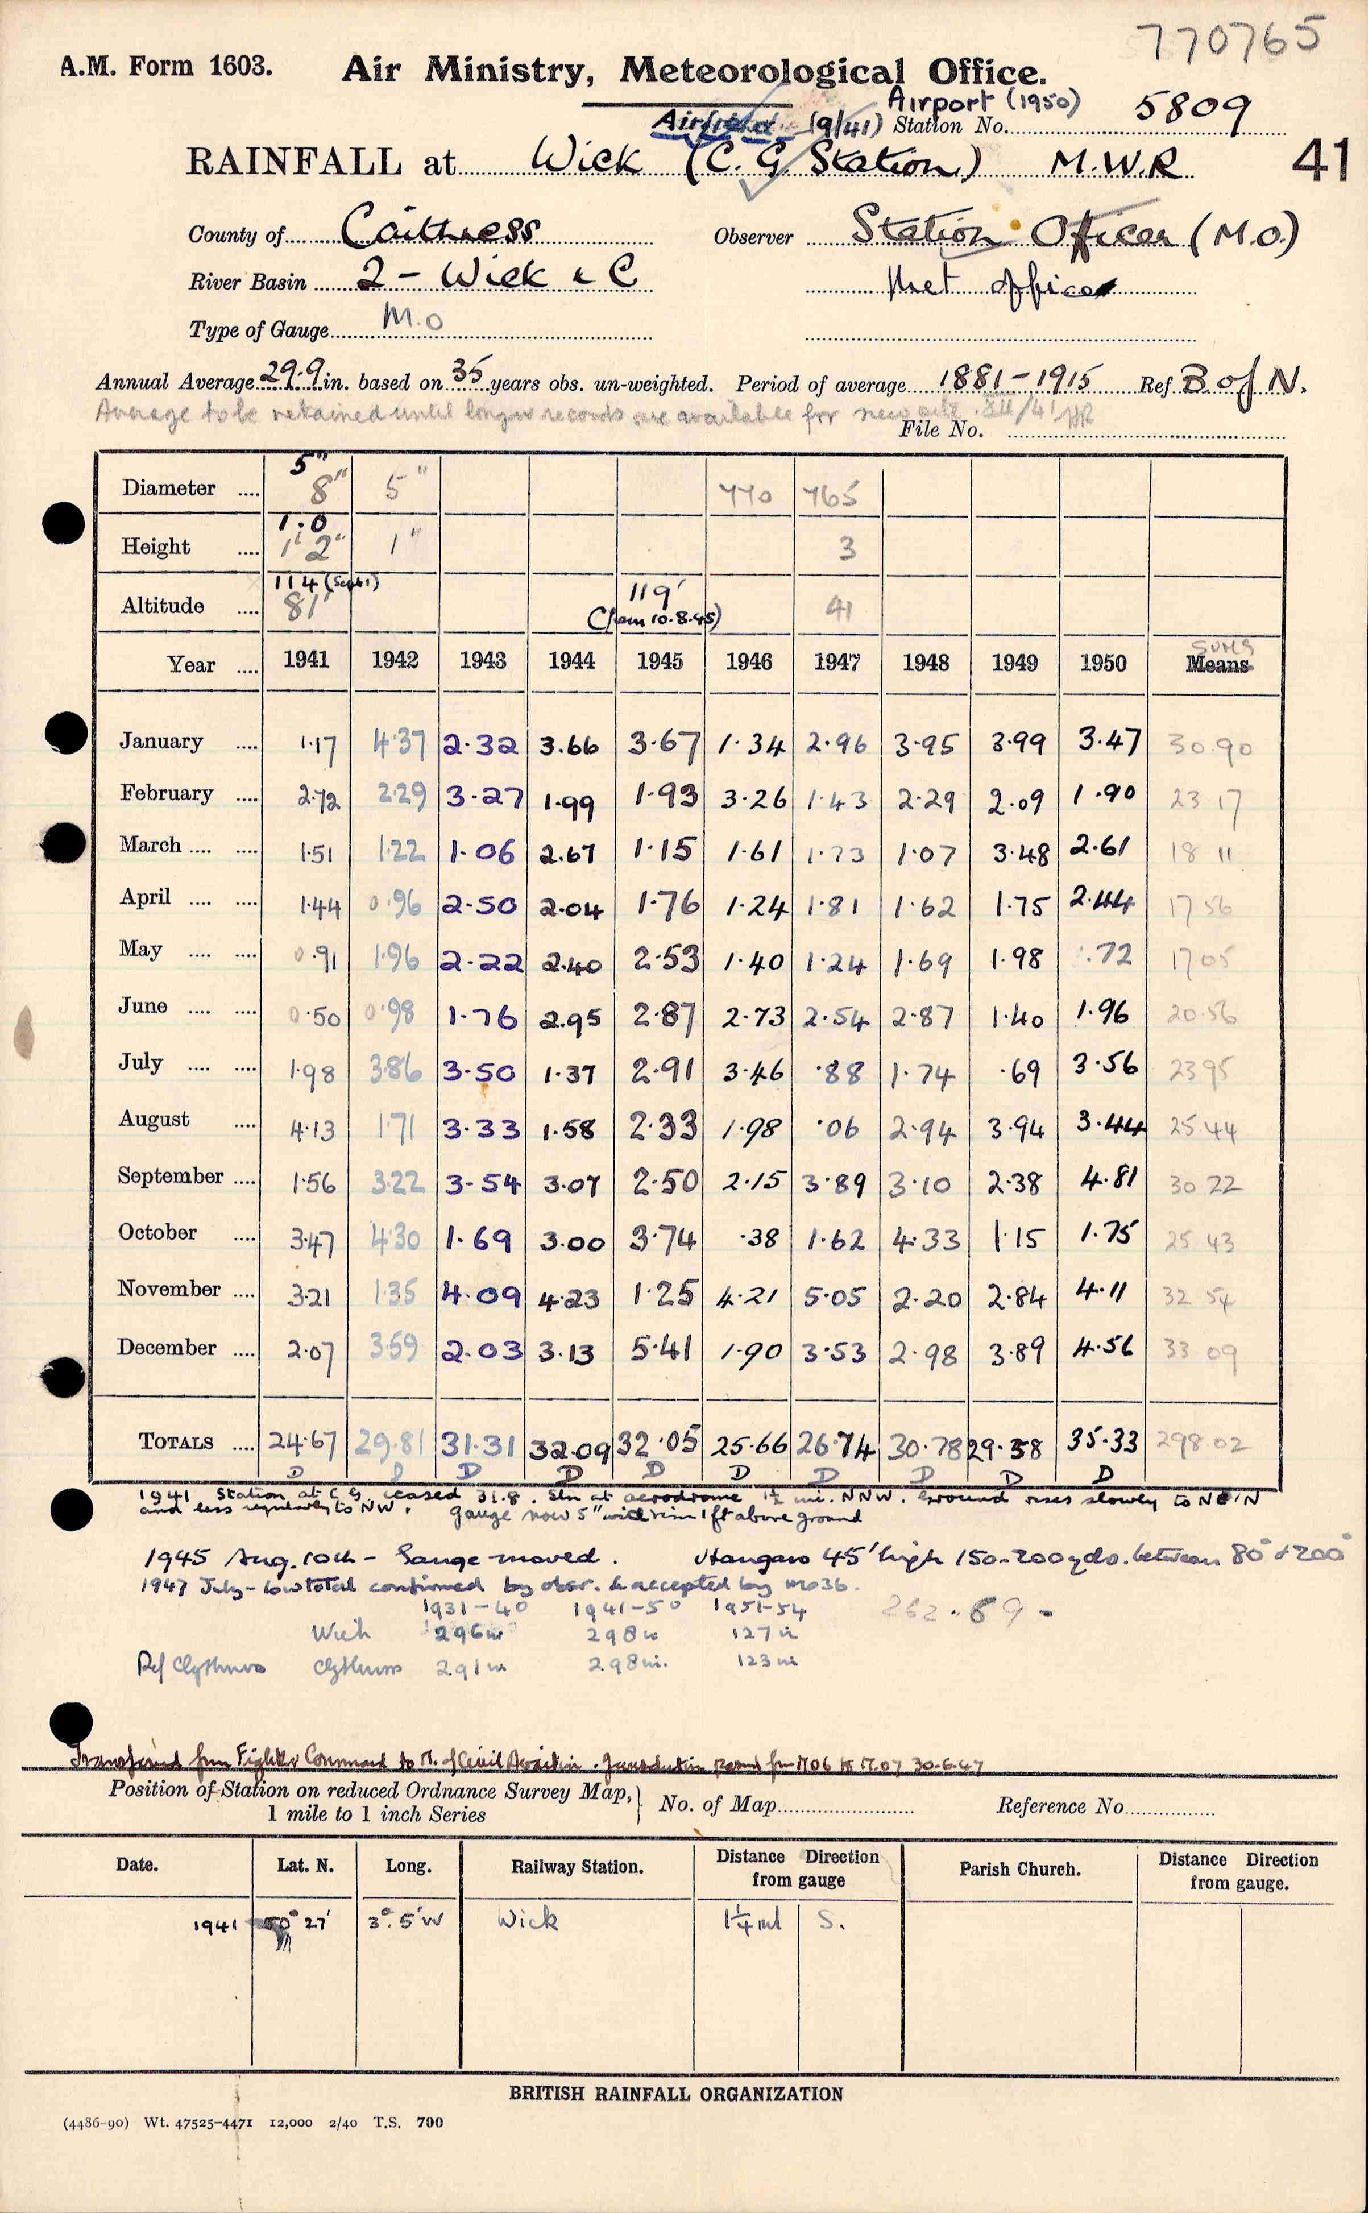 770765
A.M. Form 1603. Air Ministry, Meteorological Office.
Airfield (9/41) Airport (1950)
Station No. 5809
RAINFALL at Wick (C.G. Station) M.W.R 41
County of Caithness Observer Station Officer (M.O.)
River Basin 2 - Wick & C Met office
Type of Gauge M.O
Annual Average 29.9 in. based on 35 years obs. un-weighted. Period of average 1881-1915 Ref. B of N.
Average to be retained until longer records are available for new site.
File No.
Diameter .... 5" 8" 5" 770 765
Height .... 1.0 1' 2" 1" 3
Altitude .... 114 (Sept 1) 81' 119' (from 10.8.45) 41
Year .... 1941 1942 1943 1944 1945 1946 1947 1948 1949 1950 Means SUMS
January .... 1.17 4.37 2.32 3.66 3.67 1.34 2.96 3.95 3.99 3.47 30.90
February .... 2.72 2.29 3.27 1.99 1.93 3.26 1.43 2.29 2.09 1.90 23 17
March .... .... 1.51 1.22 1.06 2.67 1.15 1.61 1.73 1.07 3.48 2.61 18 11
April .... .... 1.44 0.96 2.50 2.04 1.76 1.24 1.81 1.62 1.75 2.44 17 56
May .... .... 0.91 1.96 2.22 2.40 2.53 1.40 1.24 1.69 1.98 .72 17 05
June .... .... 0.50 0.98 1.76 2.95 2.87 2.73 2.54 2.87 1.40 1.96 20.56
July .... .... 1.98 3.86 3.50 1.37 2.91 3.46 .88 1.74 .69 3.56 23 95
August .... 4.13 1.71 3.33 1.58 2.33 1.98 .06 2.94 3.94 3.44 25.44
September .... 1.56 3.22 3.54 3.07 2.50 2.15 3.89 3.10 2.38 4.81 30 22
October .... 3.47 4.30 1.69 3.00 3.74 .38 1.62 4.33 1.15 1.75 25 43
November .... 3.21 1.35 4.09 4.23 1.25 4.21 5.05 2.20 2.84 4.11 32 54
December .... 2.07 3.59 2.03 3.13 5.41 1.90 3.53 2.98 3.89 4.56 33 09
TOTALS .... 24.67 29.81 31.31 32.09 32.05 25.66 26.74 30.78 29.58 35.33 298.02
D D D D D D D D D D
1941 Station at C.G. ceased 31.8. Stn at aerodrome 1½ mi. NNW. Ground rises slowly to N
and less regularly to NW. Gauge now 5" with rim 1 ft above ground
1945 Aug. 10th - Gauge moved. Hangars 45' high 150-200 yds. between 80° & 200°
1947 July - low total confirmed by obsr. & accepted by MO3b.
1931-40 1941-50 1951-54 262.89 -
Wick 296 in 298 in 127 in
Ref Clythness Clythness 291 in 298 in. 123 in
Transferred from Fighter Command to M. of Civil Aviation. Jurisdiction from MO6 to MO7 30.6.47
Position of Station on reduced Ordnance Survey Map,
1 mile to 1 inch Series
No. of Map Reference No
Date. Lat. N. Long. Railway Station. Distance Direction from gauge Parish Church. Distance Direction from gauge.
1941 27' 3° 5' W Wick 1¼ ml S.
BRITISH RAINFALL ORGANIZATION
(4486-90) Wt. 47525-4471 12,000 2/40 T.S. 700